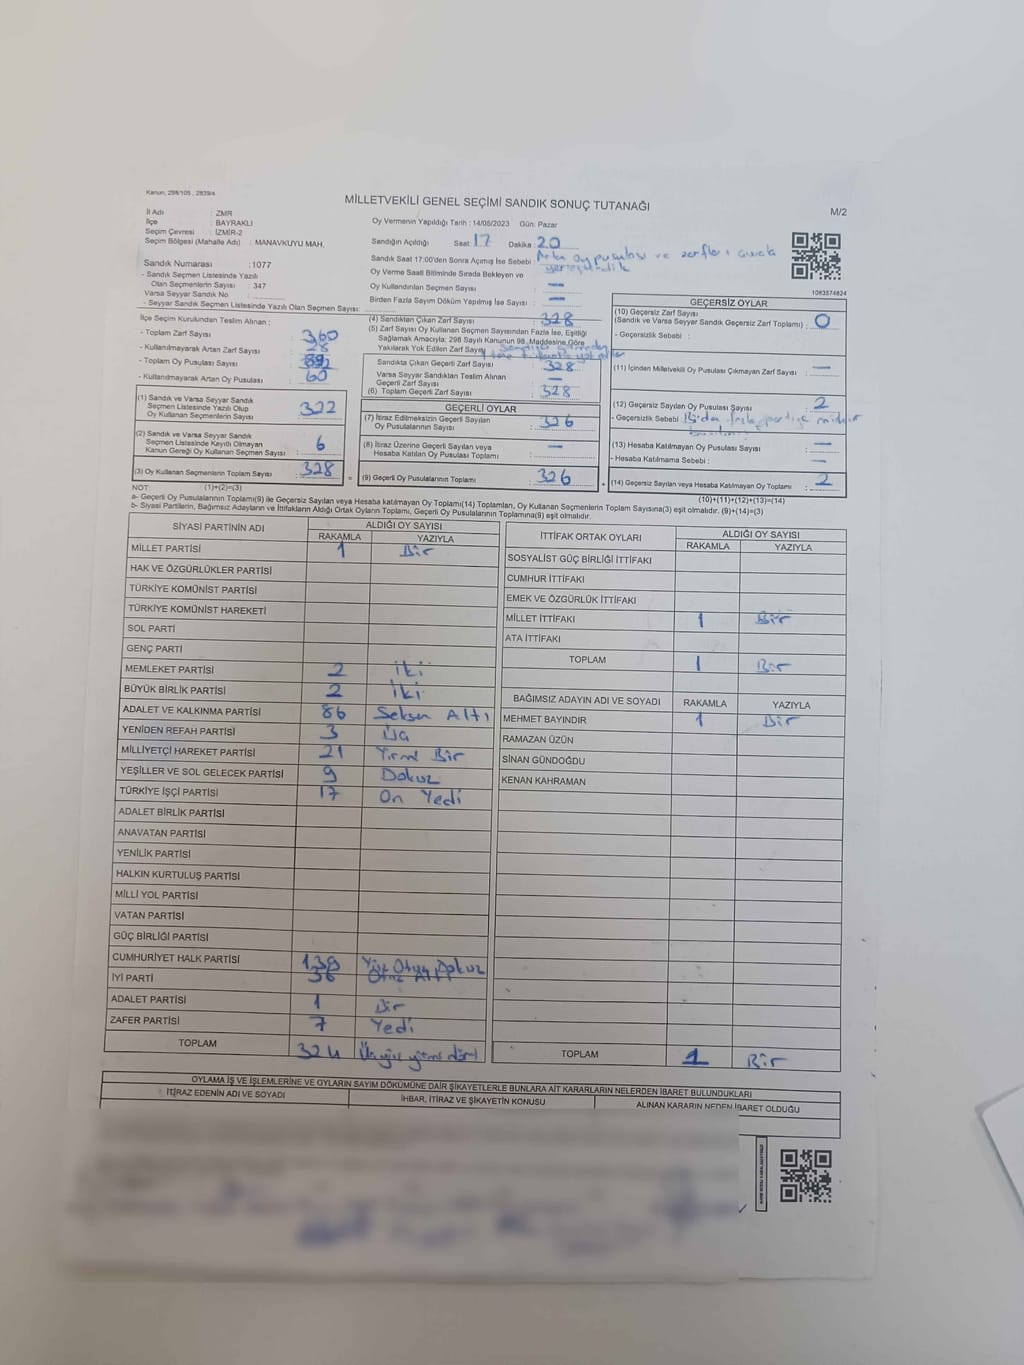 Kanun, 298/105 , 2839/4
MİLLETVEKİLİ GENEL SEÇİMİ SANDIK SONUÇ TUTANAĞI
M/2
İl Adı : ZMR
İlçe : BAYRAKLI
Seçim Çevresi : İZMİR-2
Seçim Bölgesi (Mahalle Adı) : MANAVKUYU MAH.
Sandık Numarası : 1077
- Sandık Seçmen Listesinde Yazılı
Olan Seçmenlerin Sayısı : 347
Varsa Seyyar Sandık No :
- Seyyar Sandık Seçmen Listesinde Yazılı Olan Seçmen Sayısı:
Oy Vermenin Yapıldığı Tarih : 14/05/2023 Gün: Pazar
Sandığın Açıldığı Saat: 17 Dakika : 20
Sandık Saat 17:00'den Sonra Açılmış İse Sebebi : Artan oy pusulası ve zarfları
Oy Verme Saati Bitiminde Sırada Bekleyen ve
Oy Kullandırılan Seçmen Sayısı : —
Birden Fazla Sayım Döküm Yapılmış İse Sayısı : —
1083574824
İlçe Seçim Kurulundan Teslim Alınan ;
- Toplam Zarf Sayısı : 360
- Kullanılmayarak Artan Zarf Sayısı :
- Toplam Oy Pusulası Sayısı :
- Kullanılmayarak Artan Oy Pusulası : 60
(1) Sandık ve Varsa Seyyar Sandık
Seçmen Listesinde Yazılı Olup
Oy Kullanan Seçmenlerin Sayısı : 322
(2) Sandık ve Varsa Seyyar Sandık
Seçmen Listesinde Kayıtlı Olmayan
Kanun Gereği Oy Kullanan Seçmen Sayısı : 6
(3) Oy Kullanan Seçmenlerin Toplam Sayısı : 328
(4) Sandıktan Çıkan Zarf Sayısı : 328
(5) Zarf Sayısı Oy Kullanan Seçmen Sayısından Fazla İse, Eşitliği
Sağlamak Amacıyla; 298 Sayılı Kanunun 98. Maddesine Göre
Yakılarak Yok Edilen Zarf Sayısı
Sandıkta Çıkan Geçerli Zarf Sayısı : 328
Varsa Seyyar Sandıktan Teslim Alınan
Geçerli Zarf Sayısı : —
(6) Toplam Geçerli Zarf Sayısı : 328
GEÇERLİ OYLAR
(7) İtiraz Edilmeksizin Geçerli Sayılan
Oy Pusulalarının Sayısı : 326
(8) İtiraz Üzerine Geçerli Sayılan veya
Hesaba Katılan Oy Pusulası Toplamı : —
(9) Geçerli Oy Pusulalarının Toplamı : 326
GEÇERSİZ OYLAR
(10) Geçersiz Zarf Sayısı
(Sandık ve Varsa Seyyar Sandık Geçersiz Zarf Toplamı) : 0
- Geçersizlik Sebebi :
(11) İçinden Milletvekili Oy Pusulası Çıkmayan Zarf Sayısı : —
(12) Geçersiz Sayılan Oy Pusulası Sayısı : 2
- Geçersizlik Sebebi : Birden fazla partiye mühür
(13) Hesaba Katılmayan Oy Pusulası Sayısı : —
- Hesaba Katılmama Sebebi : —
(14) Geçersiz Sayılan veya Hesaba Katılmayan Oy Toplamı : 2
NOT: (1)+(2)=(3)
(10)+(11)+(12)+(13)=(14)
a- Geçerli Oy Pusulalarının Toplamı(9) ile Geçersiz Sayılan veya Hesaba katılmayan Oy Toplamı(14) Toplamları, Oy Kullanan Seçmenlerin Toplam Sayısına(3) eşit olmalıdır. (9)+(14)=(3)
b- Siyasi Partilerin, Bağımsız Adayların ve İttifakların Aldığı Ortak Oyların Toplamı, Geçerli Oy Pusulalarının Toplamına(9) eşit olmalıdır.
SİYASİ PARTİNİN ADI ALDIĞI OY SAYISI
RAKAMLA YAZIYLA
MİLLET PARTİSİ 1 Bir
HAK VE ÖZGÜRLÜKLER PARTİSİ
TÜRKİYE KOMÜNİST PARTİSİ
TÜRKİYE KOMÜNİST HAREKETİ
SOL PARTİ
GENÇ PARTİ
MEMLEKET PARTİSİ 2 İki
BÜYÜK BİRLİK PARTİSİ 2 İki
ADALET VE KALKINMA PARTİSİ 86 Seksen Altı
YENİDEN REFAH PARTİSİ 3 Üç
MİLLİYETÇİ HAREKET PARTİSİ 21 Yirmi Bir
YEŞİLLER VE SOL GELECEK PARTİSİ 9 Dokuz
TÜRKİYE İŞÇİ PARTİSİ 17 On Yedi
ADALET BİRLİK PARTİSİ
ANAVATAN PARTİSİ
YENİLİK PARTİSİ
HALKIN KURTULUŞ PARTİSİ
MİLLİ YOL PARTİSİ
VATAN PARTİSİ
GÜÇ BİRLİĞİ PARTİSİ
CUMHURİYET HALK PARTİSİ 139 Yüz Otuz Dokuz
İYİ PARTİ 36 Otuz Altı
ADALET PARTİSİ 1 Bir
ZAFER PARTİSİ 7 Yedi
TOPLAM 324 Üçyüz yirmi dört
İTTİFAK ORTAK OYLARI ALDIĞI OY SAYISI
RAKAMLA YAZIYLA
SOSYALİST GÜÇ BİRLİĞİ İTTİFAKI
CUMHUR İTTİFAKI
EMEK VE ÖZGÜRLÜK İTTİFAKI
MİLLET İTTİFAKI 1 Bir
ATA İTTİFAKI
TOPLAM 1 Bir
BAĞIMSIZ ADAYIN ADI VE SOYADI RAKAMLA YAZIYLA
MEHMET BAYINDIR 1 Bir
RAMAZAN ÜZÜN
SİNAN GÜNDOĞDU
KENAN KAHRAMAN
TOPLAM 1 Bir
OYLAMA İŞ VE İŞLEMLERİNE VE OYLARIN SAYIM DÖKÜMÜNE DAİR ŞİKAYETLERLE BUNLARA AİT KARARLARIN NELERDEN İBARET BULUNDUKLARI
İTİRAZ EDENİN ADI VE SOYADI İHBAR, İTİRAZ VE ŞİKAYETİN KONUSU ALINAN KARARIN NEDEN İBARET OLDUĞU